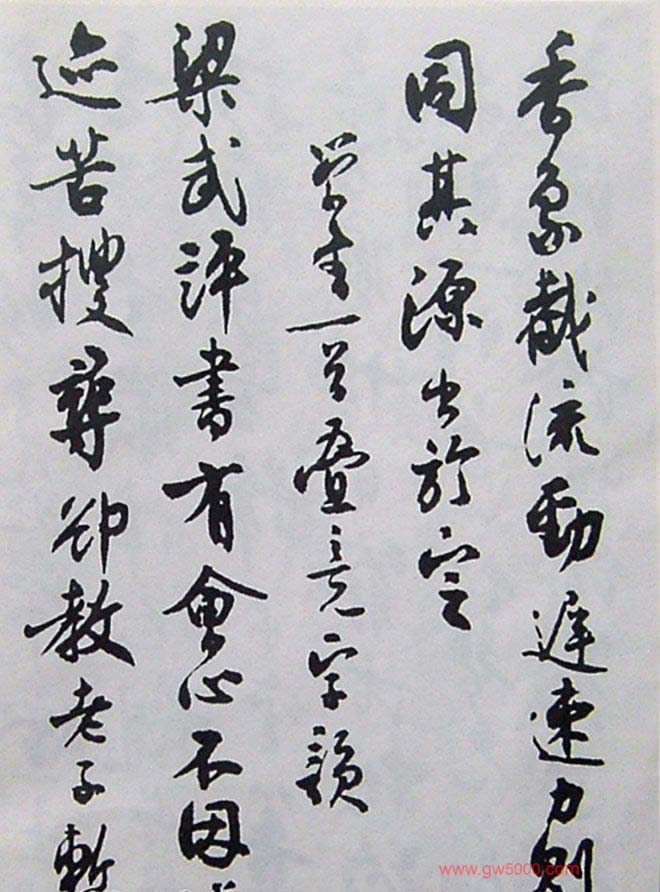 香象截流動遲速力
同其源出於定
学書一首叠竟字韻
梁武評書有會心不因
迹苦搜尋卻教老子暫
www.gw5000.com